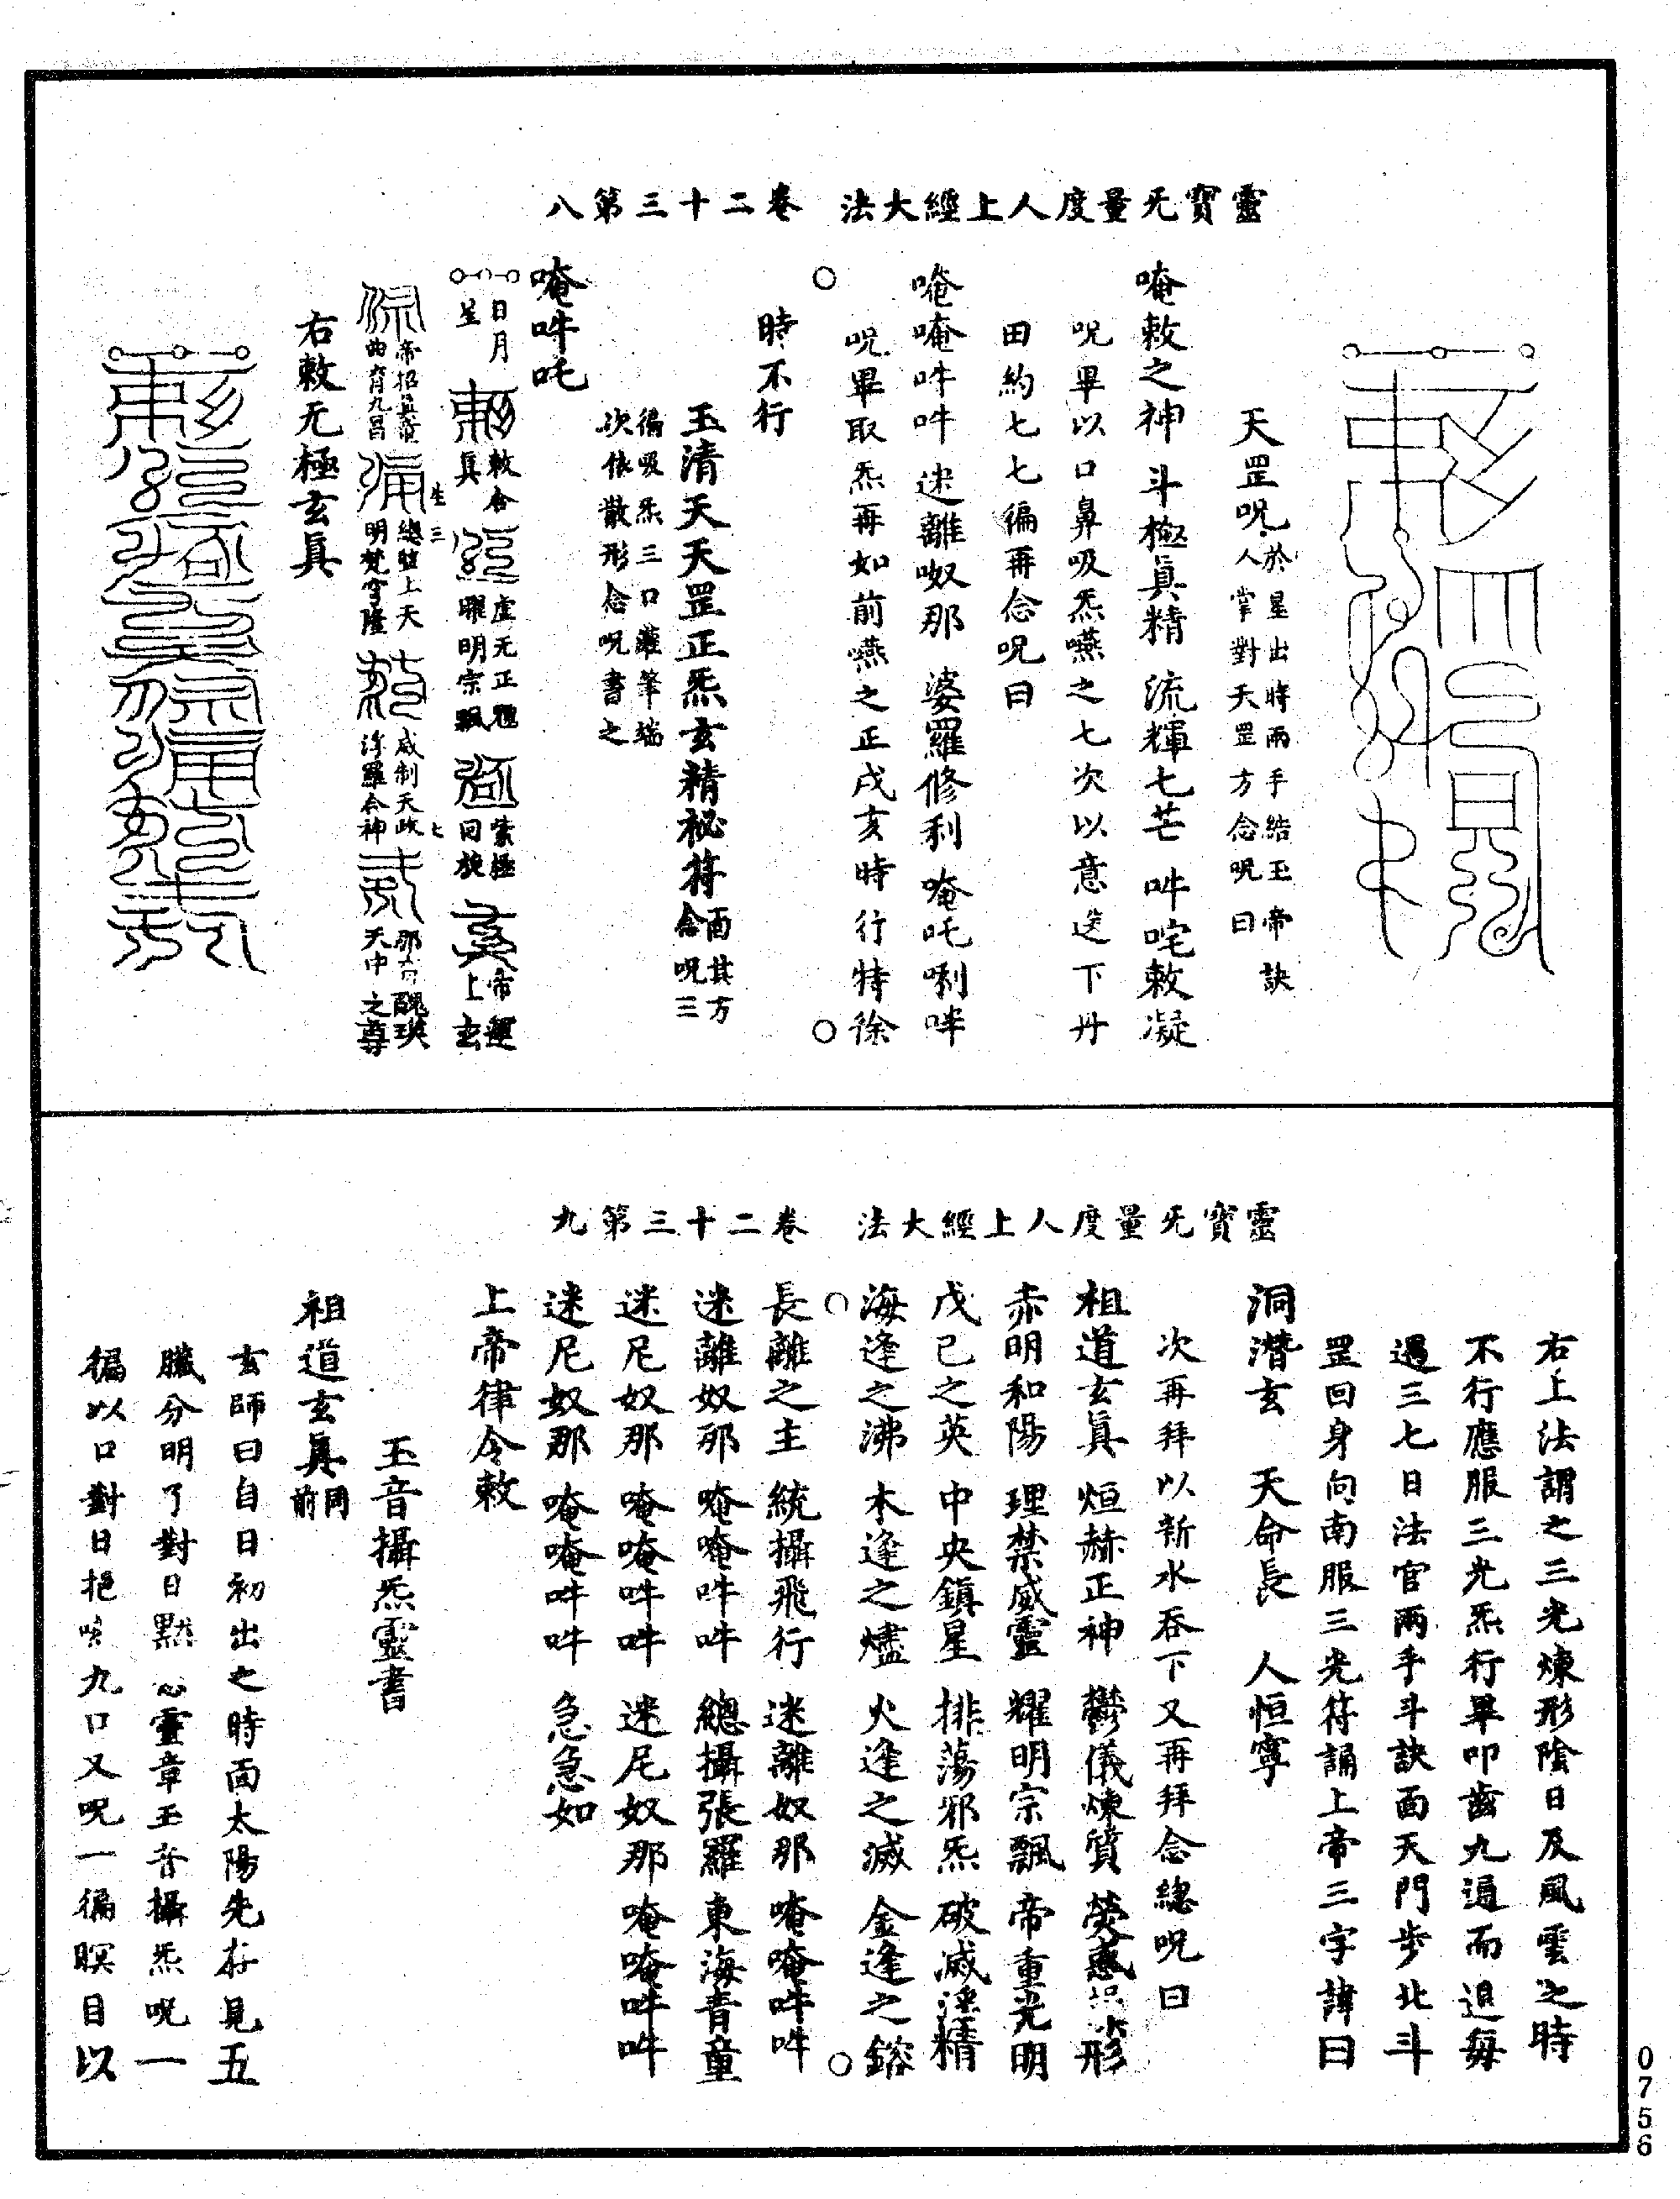 靈寶无量度人上經大法　卷二十三第八
天罡呪於星出時兩手結玉帝訣
人掌對天罡方念呪曰
唵敕之神　斗極眞精　流輝七芒　吽咤敕凝
呪畢以口鼻吸炁嚥之七次以意送下丹
田約七七徧再念呪曰
唵唵吽吽　迷離呶那　婆羅修利　唵吒唎吽
呪畢取炁再如前嚥之正戌亥時行持徐
時不行
玉清天天罡正炁玄精祕符面其方
念呪三
徧吸炁三口灌筆端
次依散形念呪書之
唵吽吒
日月
星
敕合
眞
虛无正體
曜明宗飄
紫極
回旋
帝運
上玄
帝招眞童
曲育九昌
總監上天
明梵穹隆
生三
威制天政
浮羅合神
七
那育醜瑛
天中之尊
右敕无極玄眞
靈寶无量度人上經大法　卷二十三第九
右上法謂之三光煉形陰日及風雲之時
不行應服三光炁行畢叩齒九遍而退每
遇三七日法官兩手斗訣面天門步北斗
罡回身向南服三光符誦上帝三字諱曰
洞潛玄　天命長　人恒寧
次再拜以新水吞下又再拜念總呪曰
祖道玄眞　烜赫正神　鬱儀煉質　熒惑　形
赤明和陽　理禁威靈　耀明宗飄　帝重光明
戊己之英　中央鎮星　排蕩邪炁　破滅淫精
海逢之沸　木逢之燼　火逢之滅　金逢之鎔
長離之主　統攝飛行　迷離奴那　唵唵吽吽
迷離奴那　唵唵吽吽　總攝張羅　東海青童
迷尼奴那　唵唵吽吽　迷尼奴那　唵唵吽吽
迷尼奴那　唵唵吽吽　急急如
上帝律令敕
玉音攝炁靈書
祖道玄眞同前
玄師曰自日初出之時面太陽先存見五
臟分明了對日默念靈章玉音攝炁呪一
徧以口對日挹嚥九口又呪一徧瞑目以
0756